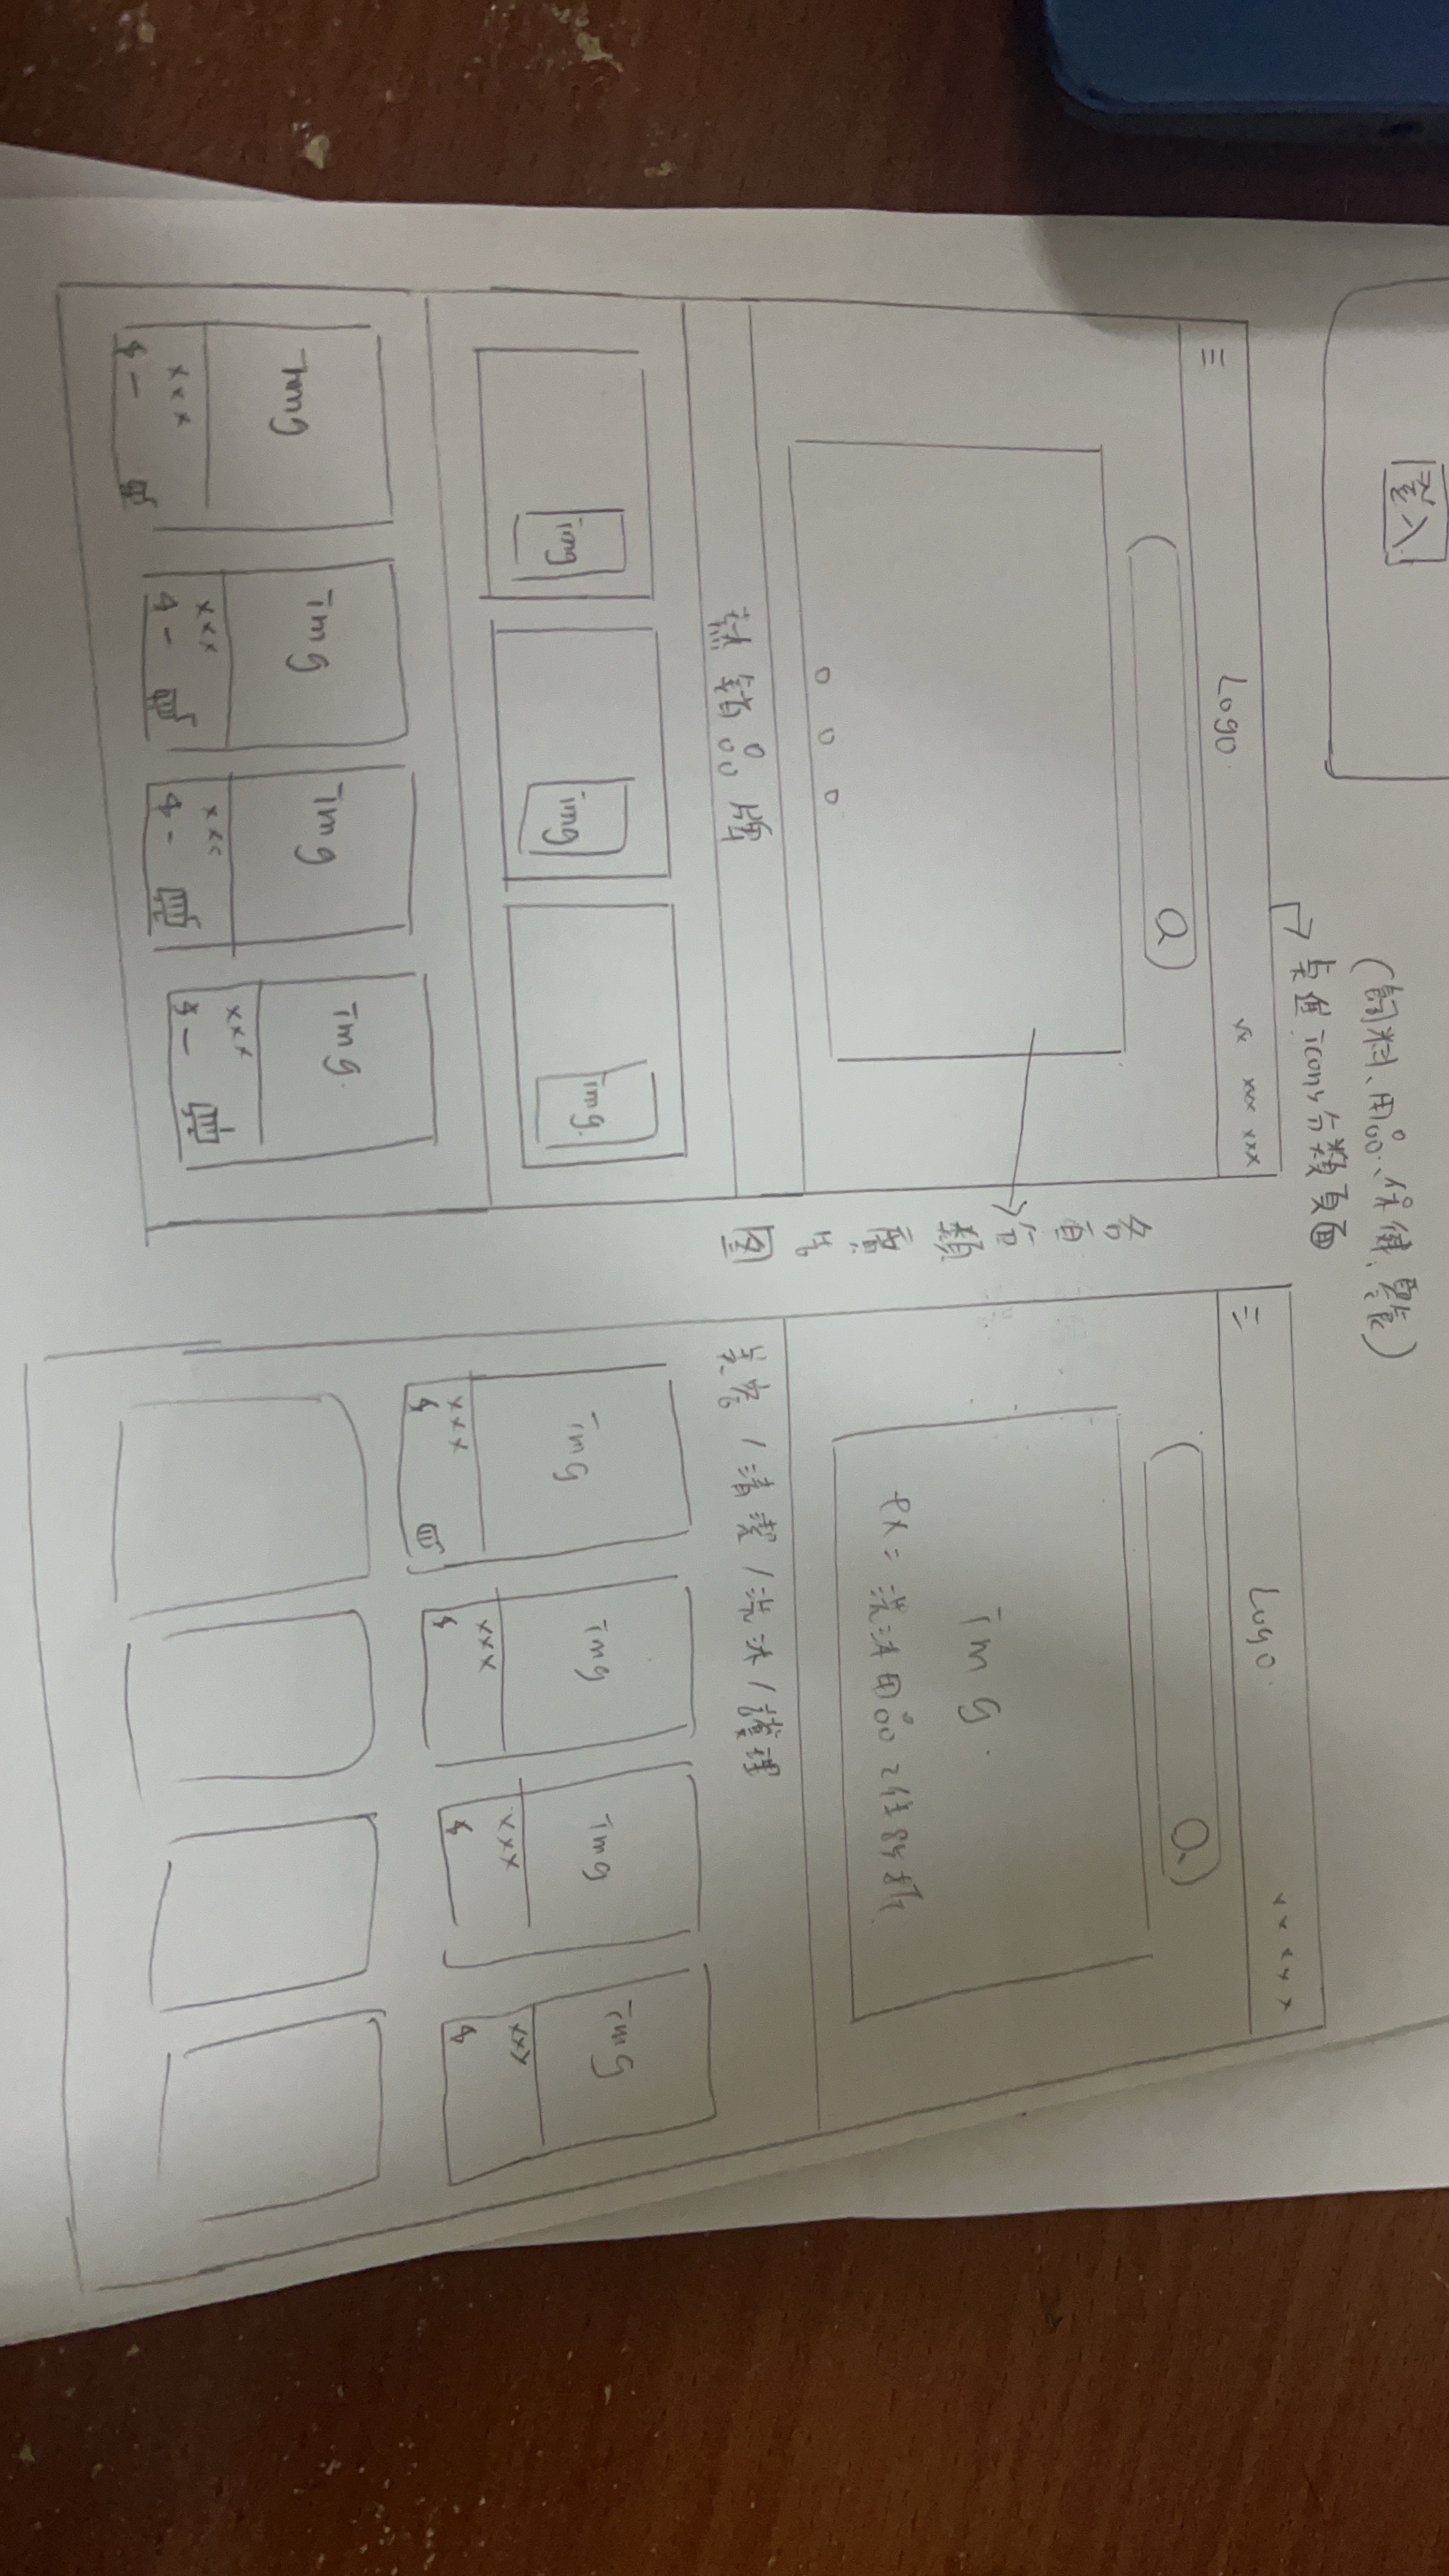 登入
(飼料、用品、保健、零食)
點進icon分類頁面
三
Logo
xx xxx xxx
Q
各項分類廣告圖
熱銷品牌
img
img
img
img
xxx
$ -
img
xxx
$ -
img
xxx
$ -
img
xxx
$ -
三
Logo
x x x x x
Q
img
ex = 洗沐用品 2件84折
美容 / 清潔 / 洗沐 / 護理
img
xxx
$
img
xxx
$
img
xxx
$
img
xxx
$